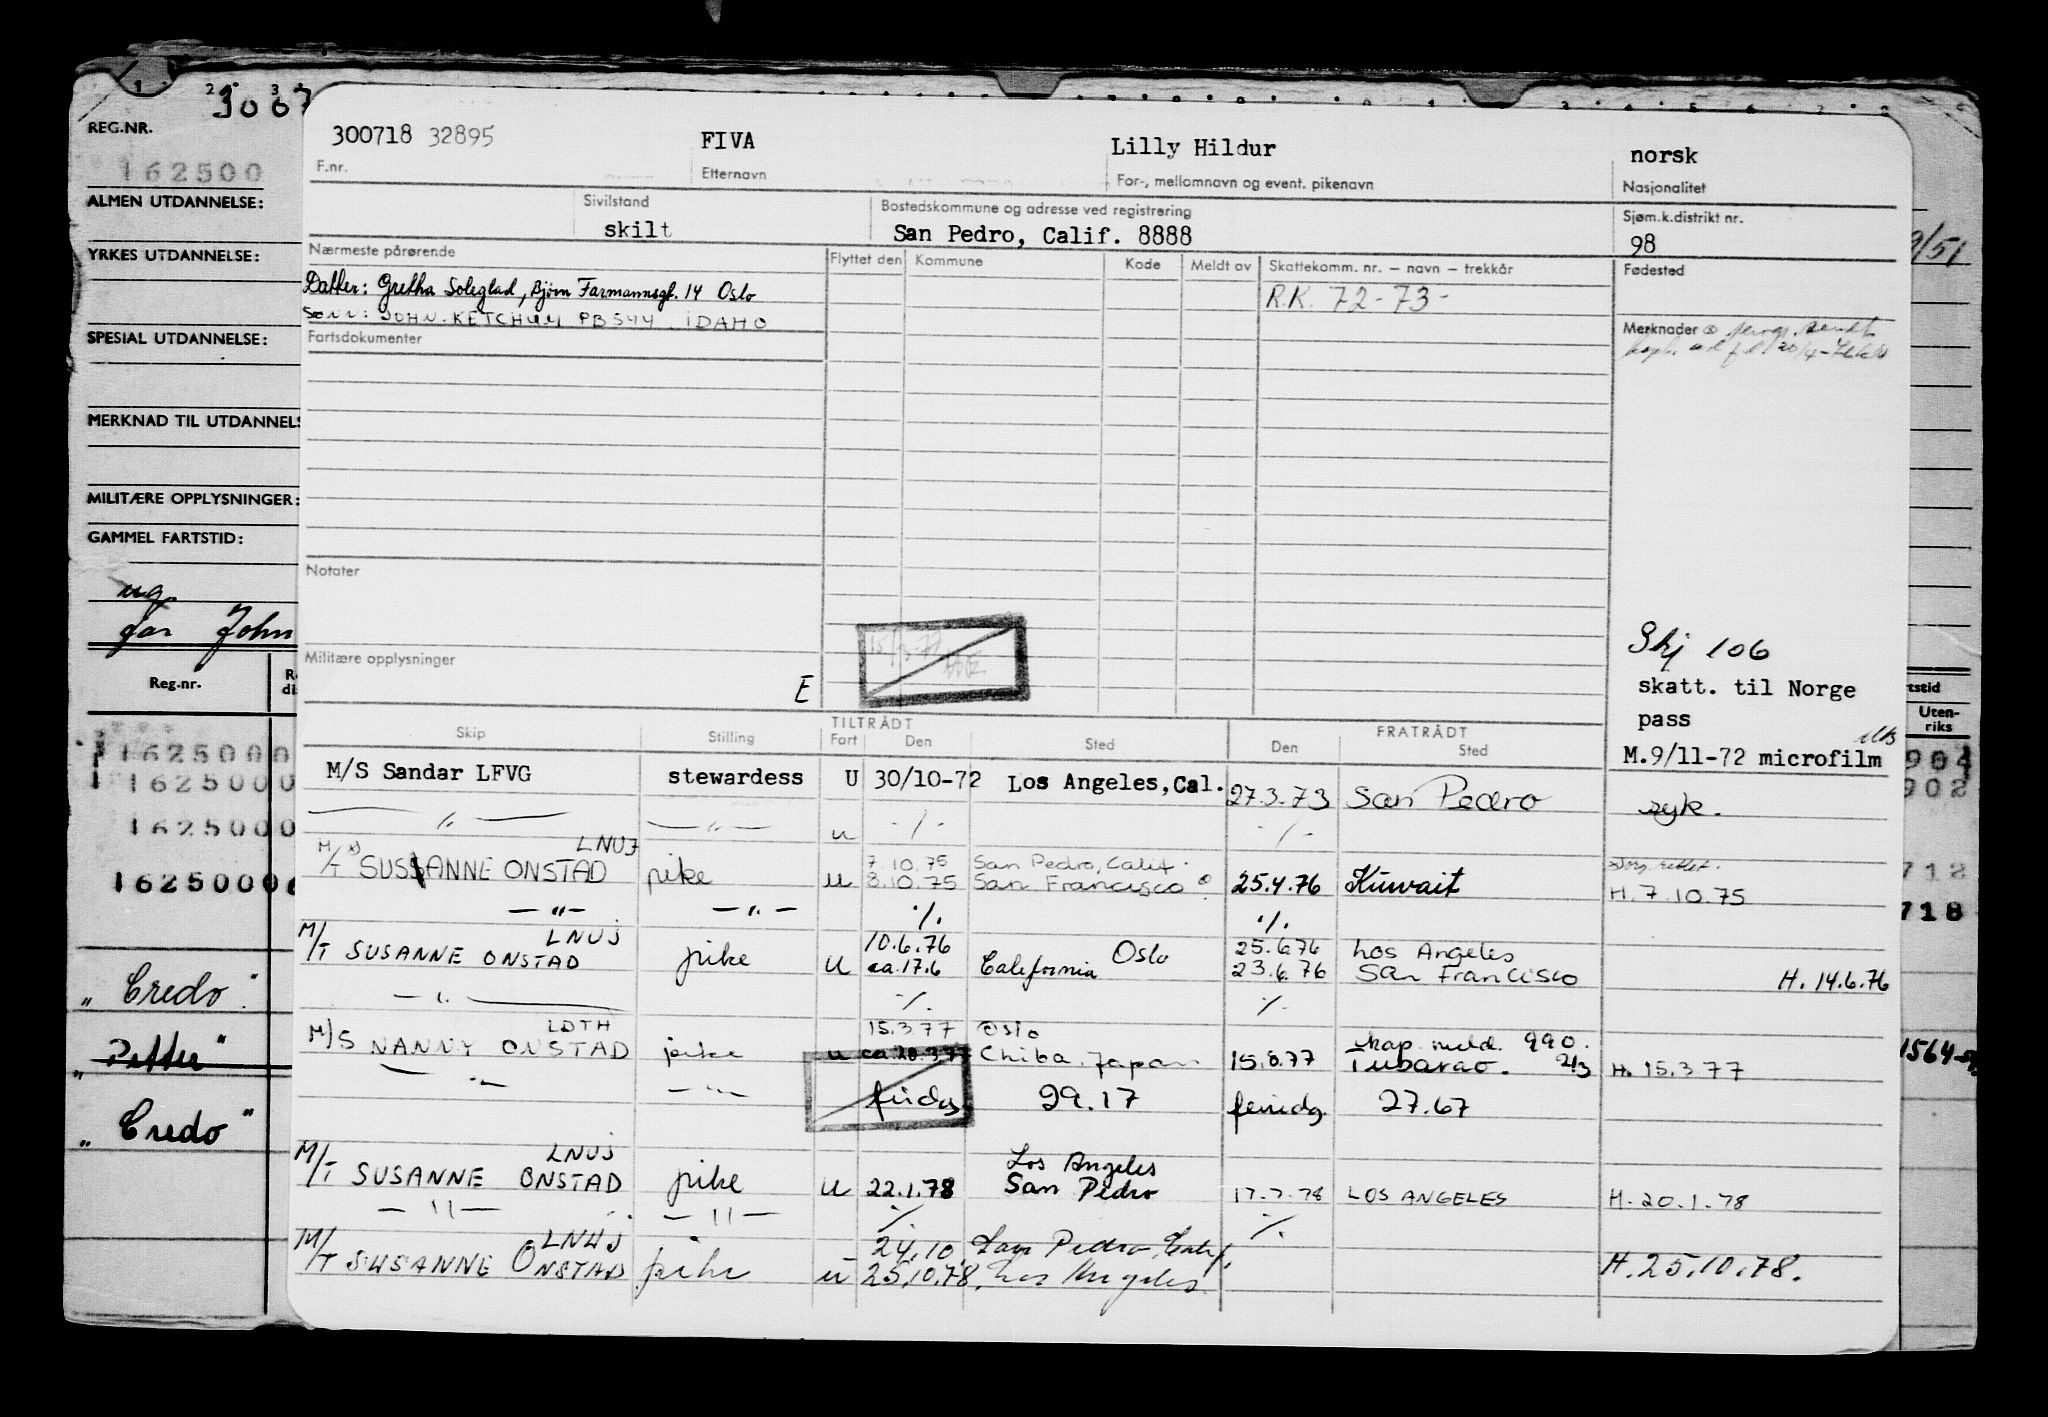 3007
REG.NR.
162500
ALMEN UTDANNELSE:
YRKES UTDANNELSE:
SPESIAL UTDANNELSE:
MERKNAD TIL UTDANNELS
MILITÆRE OPPLYSNINGER:
GAMMEL FARTSTID:
ug.
far John
Reg.nr.
1625000
1625000
1625000
1625000
„Credo"
„Petter"
„Credo"
300718 32895 FIVA Lilly Hildur norsk
F.nr. Etternavn For-, mellomnavn og event. pikenavn Nasjonalitet
Sivilstand Bostedskommune og adresse ved registrering Sjøm.k.distrikt nr.
skilt San Pedro, Calif. 8888 98
Nærmeste pårørende Flyttet den Kommune Kode Meldt av Skattekomm. nr. – navn – trekkår Fødested
Datter: Gretha Soleglad, Bjørn Farmannsgt. 14 Oslo R.K. 72-73-
Sønn: JOHN KETCHUM PB544 IDAHO
Fartsdokumenter Merknader
Notater
15/3-77
Militære opplysninger
E
Skj 106
skatt. til Norge
pass
M.9/11-72 microfilm
TILTRÅDT FRATRÅDT
Skip Stilling Fart Den Sted Den Sted
M/S Sandar LFVG stewardess U 30/10-72 Los Angeles,Cal. 27.3.73 San Pedro syk.
— " — — " — u ./. ./.
LNUJ 7.10.75 San Pedro, Calif.
M/T SUSSANNE ONSTAD pike u 8.10.75 San Francisco 25.4.76 Kuwait H. 7.10.75
— " — — " — ./. ./.
LNUJ 10.6.76 Oslo 25.6.76 Los Angeles
M/T SUSANNE ONSTAD pike U ca.17.6 California 23.6.76 San Francisco H. 14.6.76
— " — ./. ./.
LDTH 15.3.77 Oslo skap meld. 990.
M/S NANNY ONSTAD pike u ca.20.3.77 Chiba, Japan 15.8.77 Tubarao. 2/3 H. 15.3.77
— " — — " — 29.17 27.67
LNUJ Los Angeles
M/T SUSANNE ONSTAD pike U 22.1.78 San Pedro 17.7.78 LOS ANGELES H. 20.1.78
— " — — " — ./. ./.
LNUJ 24.10. San Pedro, Calif.
M/T SUSANNE ONSTAD pike u 25.10.78. Los Angeles H. 25.10.78.
9/51
tstid
Uten-
riks
904
902
712
718
1564